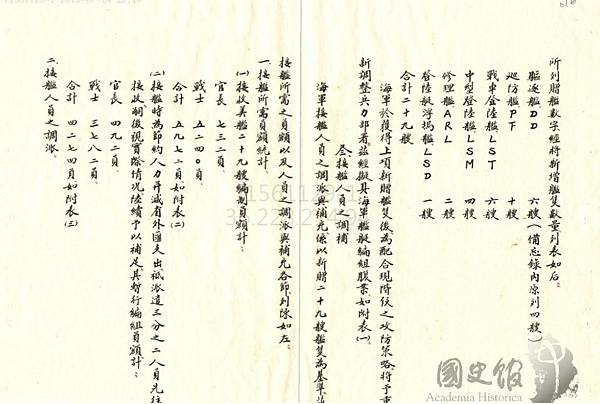 所列贈艦數字經將新增艦隻數量列表如后
驅逐艦DD 六艘(備忘錄內原列四艘)
巡防艦PF 十艘
戰車登陸艦LST 六艘
中型登陸艦LSM 四艘
修理艦ARL 二艘
登陸艇浮塢艦LSD 一艘
合計二十九艘
海軍於獲得上項新贈艦隻後為配合現階段之攻防策略將予重
新調整兵力部署茲經擬具海軍艦艇編組腹案如附表(一)
叁接艦人員之調補
海軍接艦人員之調派與補充係以新贈二十九艘艦隻為基準
接艦所需之員額以及人員之調派與補充各節列陳如左
一、接艦所需員額統計、
(一)接收美艦二十九艘編制員額計、
官長 七三二員
戰士 五二四〇員
合計 五九七二員如附表(二)
(二)接艦時為節約人力并減省外匯支出祇派遣三分之二人員先往
接收嗣後視實際情況陸續予以補足其暫行編組員額計、
官長 四九二員
戰士 三七八二員
合計 四二七四員如附表(三)
二、接艦人員之調派、
國史館
Academia Historica